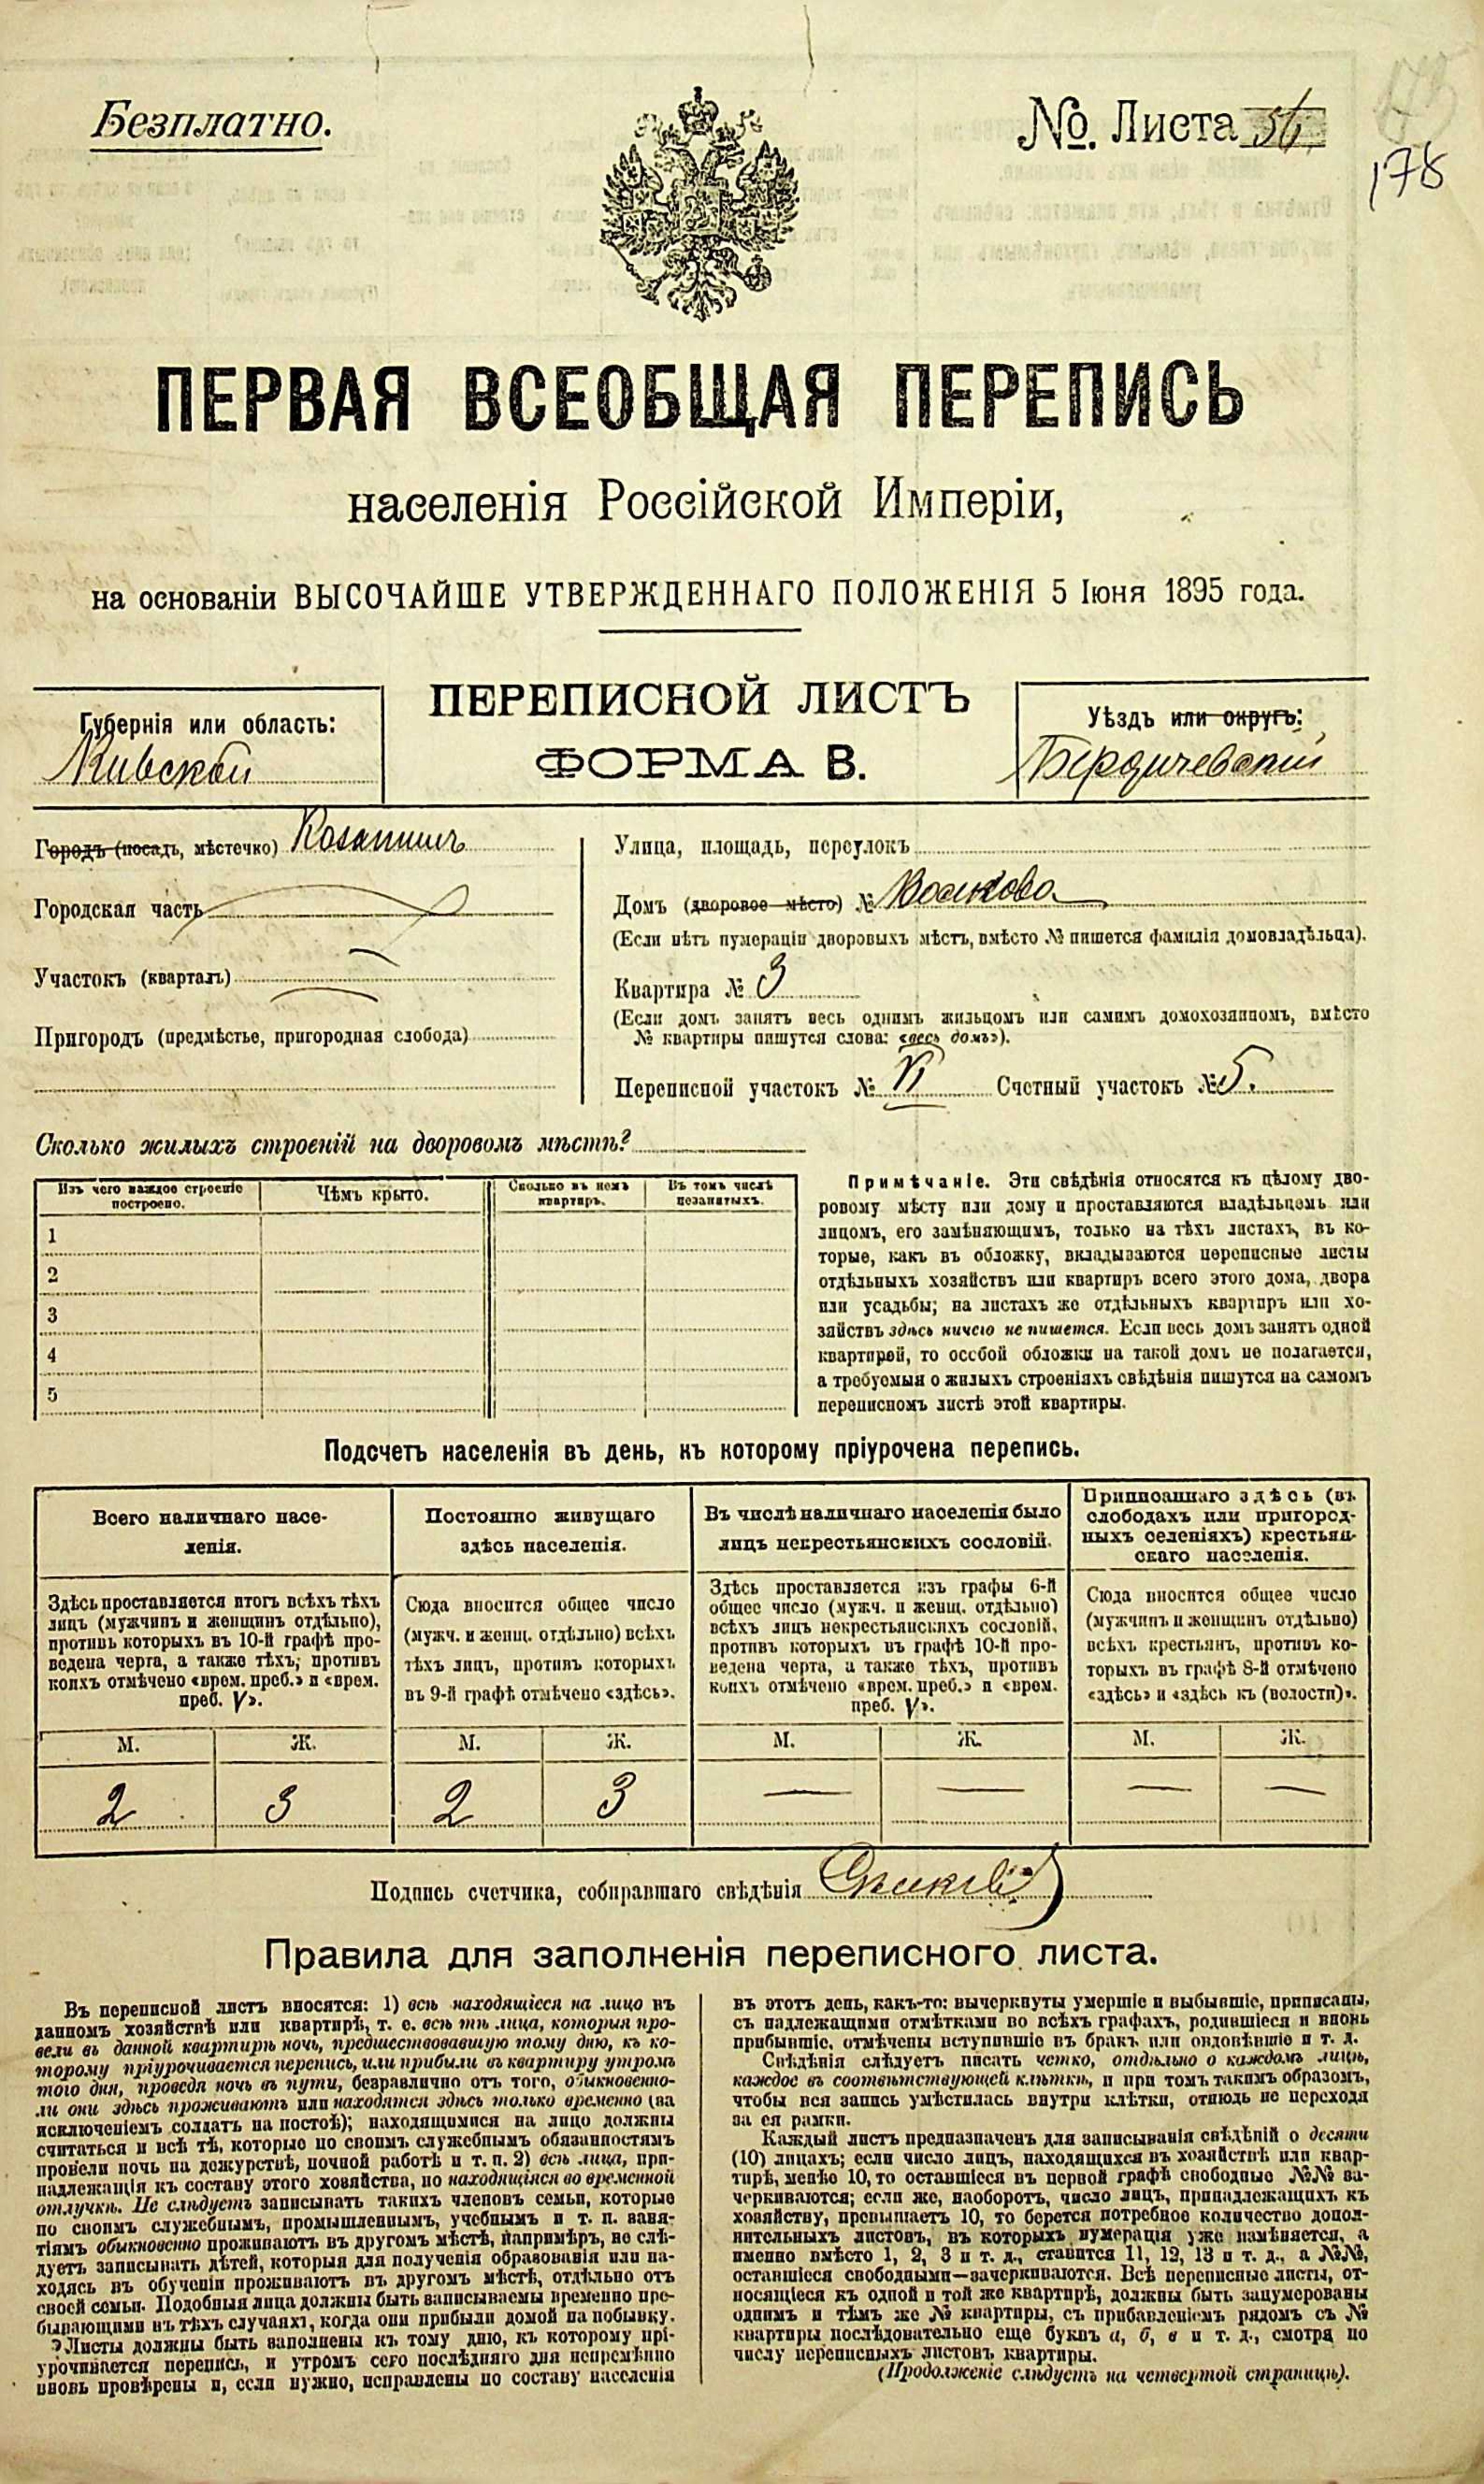 Безплатно.
№. Листа 56
178
ПЕРВАЯ ВСЕОБЩАЯ ПЕРЕПИСЬ
населенія Россійской Имперіи,
на основаніи ВЫСОЧАЙШЕ УТВЕРЖДЕННАГО ПОЛОЖЕНІЯ 5 Іюня 1895 года.
Губернія или область:
Кивской
ПЕРЕПИСНОЙ ЛИСТЪ
ФОРМА В.
Уѣздъ или округъ:
Бердичевскій
Городъ (посадъ, мѣстечко) Козатинъ
Городская часть
Участокъ (кварталъ)
Пригородъ (предмѣстье, пригородная слобода)
Улица, площадь, переулокъ
Домъ (дворовое мѣсто) № Волкова
(Если нѣтъ нумераціи дворовыхъ мѣстъ, вмѣсто № пишется фамилія домовладѣльца).
Квартира № 3
(Если домъ занятъ весь однимъ жильцомъ или самимъ домохозяиномъ, вмѣсто
№ квартиры пишутся слова: «весь домъ»).
Переписной участокъ № VI Счетный участокъ № 5.
Сколько жилыхъ строеній на дворовомъ мѣстѣ?
Изъ чего каждое строеніе построено.
Чѣмъ крыто.
Сколько въ немъ квартиръ.
Въ томъ числѣ незанятыхъ.
1
2
3
4
5
Примѣчаніе. Эти свѣдѣнія относятся къ цѣлому дво-
ровому мѣсту или дому и проставляются владѣльцемъ или
лицомъ, его замѣняющимъ, только на тѣхъ листахъ, въ ко-
торые, какъ въ обложку, вкладываются переписные листы
отдѣльныхъ хозяйствъ или квартиръ всего этого дома, двора
или усадьбы; на листахъ же отдѣльныхъ квартиръ или хо-
зяйствъ здѣсь ничего не пишется. Если весь домъ занятъ одной
квартирой, то особой обложки на такой домъ не полагается,
а требуемыя о жилыхъ строеніяхъ свѣдѣнія пишутся на самомъ
переписномъ листѣ этой квартиры.
Подсчетъ населенія въ день, къ которому пріурочена перепись.
Всего наличнаго насе-
ленія.
Здѣсь проставляется итогъ всѣхъ тѣхъ
лицъ (мужчинъ и женщинъ отдѣльно),
противъ которыхъ въ 10-й графѣ про-
ведена черта, а также тѣхъ, противъ
коихъ отмѣчено «врем. преб.» и «врем.
преб. V».
Постоянно живущаго
здѣсь населенія.
Сюда вносится общее число
(мужч. и женщ. отдѣльно) всѣхъ
тѣхъ лицъ, противъ которыхъ
въ 9-й графѣ отмѣчено «здѣсь».
Въ числѣ наличнаго населенія было
лицъ некрестьянскихъ сословій.
Здѣсь проставляется изъ графы 6-й
общее число (мужч. и женщ. отдѣльно)
всѣхъ лицъ некрестьянскихъ сословій,
противъ которыхъ въ графѣ 10-й про-
ведена черта, а также тѣхъ, противъ
коихъ отмѣчено «врем. преб.» и «врем.
преб. V».
Приписаннаго здѣсь (въ
слободахъ или пригород-
ныхъ селеніяхъ) крестьян-
скаго населенія.
Сюда вносится общее число
(мужчинъ и женщинъ отдѣльно)
всѣхъ крестьянъ, противъ ко-
торыхъ въ графѣ 8-й отмѣчено
«здѣсь» и «здѣсь къ (волости)».
М. Ж. М. Ж. М. Ж. М. Ж.
2 3 2 3 — — — —
Подпись счетчика, собиравшаго свѣдѣнія
Правила для заполненія переписного листа.
Въ переписной листъ вносятся: 1) всѣ находящіеся на лицо въ
данномъ хозяйствѣ или квартирѣ, т. е. всѣ тѣ лица, которыя про-
вели въ данной квартирѣ ночь, предшествовавшую тому дню, къ ко-
торому пріурочивается перепись, или прибыли въ квартиру утромъ
того дня, проведя ночь въ пути, безразлично отъ того, обыкновенно-
ли они здѣсь проживаютъ или находятся здѣсь только временно (за
исключеніемъ солдатъ на постоѣ); находящимися на лицо должны
считаться и всѣ тѣ, которые по своимъ служебнымъ обязанностямъ
провели ночь на дежурствѣ, ночной работѣ и т. п. 2) всѣ лица, при-
надлежащія къ составу этого хозяйства, но находящіяся во временной
отлучкѣ. Не слѣдуетъ записывать такихъ членовъ семьи, которые
по своимъ служебнымъ, промышленнымъ, учебнымъ и т. п. заня-
тіямъ обыкновенно проживаютъ въ другомъ мѣстѣ, напримѣръ, не слѣ-
дуетъ записывать дѣтей, которыя для полученія образованія или на-
ходясь въ обученіи проживаютъ въ другомъ мѣстѣ, отдѣльно отъ
своей семьи. Подобныя лица должны быть записываемы временно пре-
бывающими въ тѣхъ случаяхъ, когда они прибыли домой на побывку.
Листы должны быть заполнены къ тому дню, къ которому прі-
урочивается перепись, и утромъ сего послѣдняго дня непремѣнно
вновь провѣрены и, если нужно, исправлены по составу населенія
въ этотъ день, какъ-то: вычеркнуты умершіе и выбывшіе, приписаны,
съ надлежащими отмѣтками во всѣхъ графахъ, родившіеся и вновь
прибывшіе, отмѣчены вступившіе въ бракъ или овдовѣвшіе и т. д.
Свѣдѣнія слѣдуетъ писать четко, отдѣльно о каждомъ лицѣ,
каждое въ соотвѣтствующей клѣткѣ, и при томъ такимъ образомъ,
чтобы вся запись умѣстилась внутри клѣтки, отнюдь не переходя
за ея рамки.
Каждый листъ предназначенъ для записыванія свѣдѣній о десяти
(10) лицахъ; если число лицъ, находящихся въ хозяйствѣ или квар-
тирѣ, менѣе 10, то оставшіеся въ первой графѣ свободные №№ за-
черкиваются; если же, наоборотъ, число лицъ, принадлежащихъ къ
хозяйству, превышаетъ 10, то берется потребное количество допол-
нительныхъ листовъ, въ которыхъ нумерація уже измѣняется, а
именно вмѣсто 1, 2, 3 и т. д., ставится 11, 12, 13 и т. д., а №№,
оставшіеся свободными—зачеркиваются. Всѣ переписные листы, от-
носящіеся къ одной и той же квартирѣ, должны быть занумерованы
однимъ и тѣмъ же № квартиры, съ прибавленіемъ рядомъ съ №
квартиры послѣдовательно еще буквъ а, б, в и т. д., смотря по
числу переписныхъ листовъ квартиры.
(Продолженіе слѣдуетъ на четвертой страницѣ).